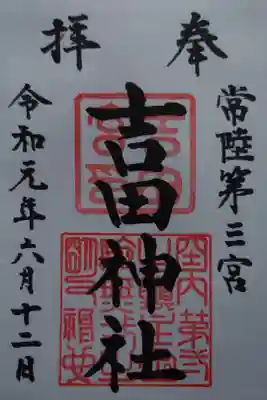 奉拝
常陸第三宮
吉田神社
令和元年六月十二日